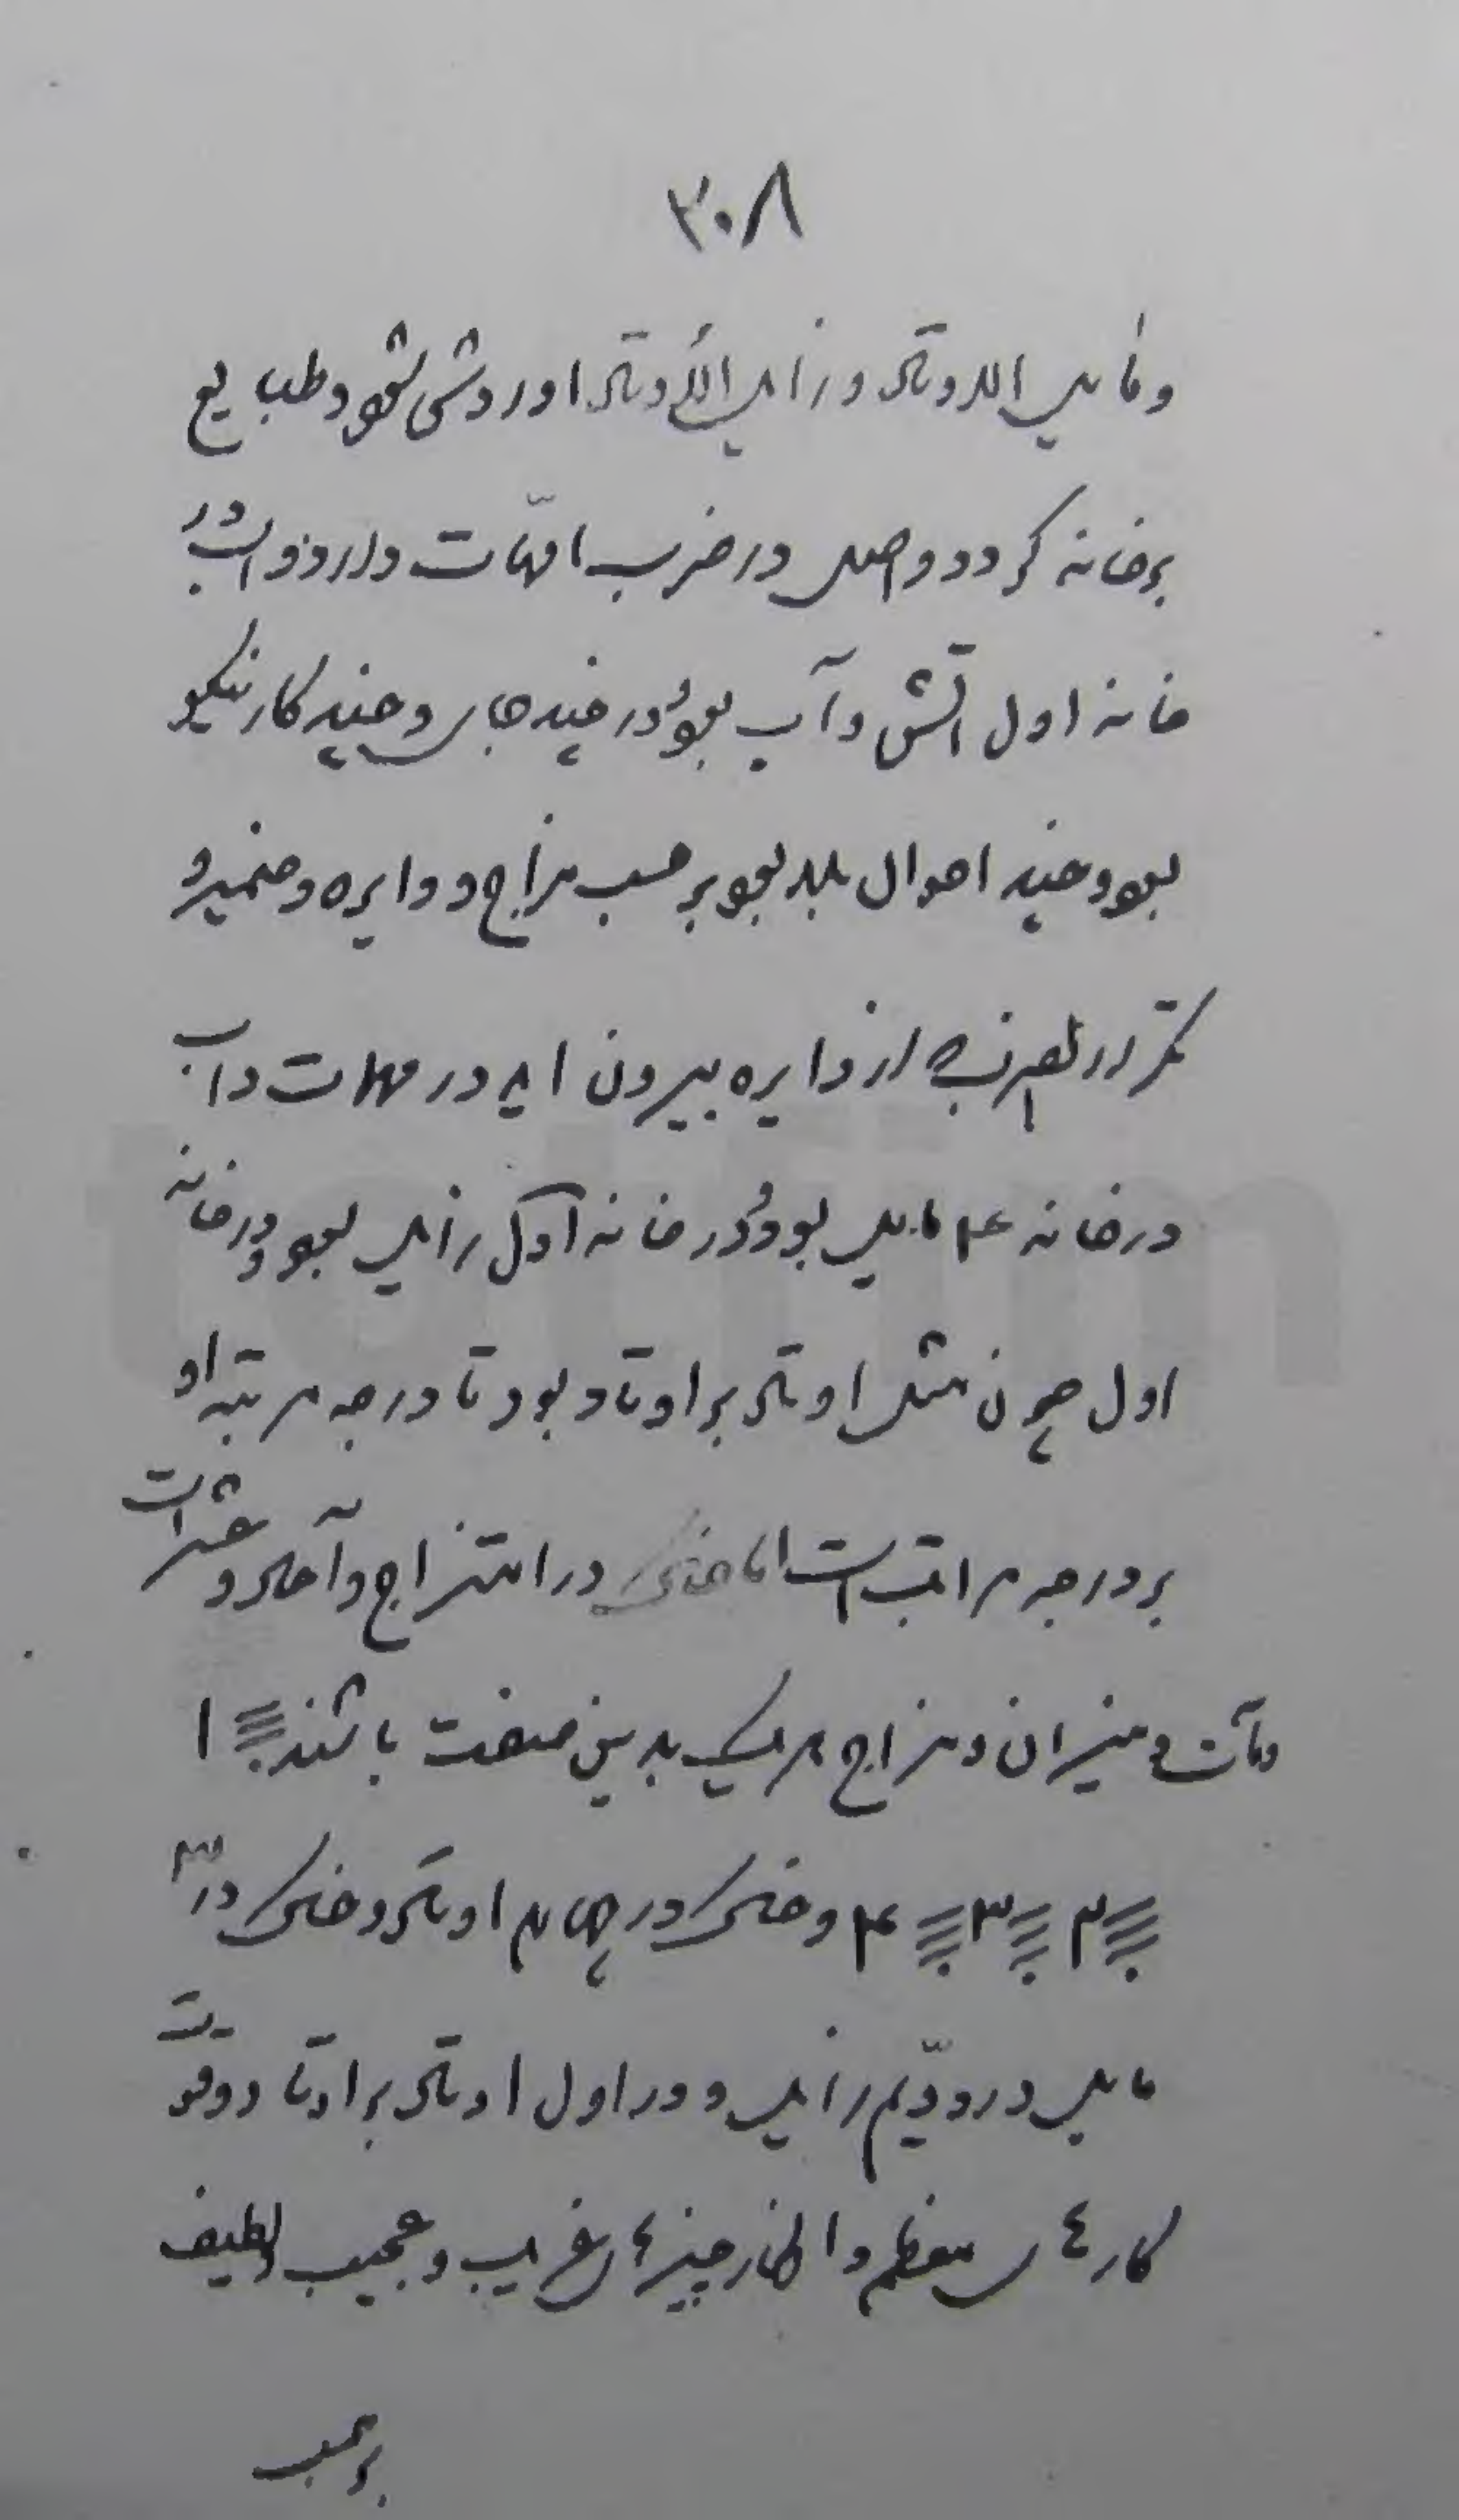 ۳۰۸
و مایل الاوتاد و زایل الاوتاد او روشن شود و طبایع
هر خانه کردد و اصل در ضرب امهات دارد و است در
خانه اول آتش و آب بود و در چند جای و چند کار نیکو
بود و چند احوال بلد بود بر حسب مزاج و دایره و ضمیر و
تکرار از دایره بیرون اید در مهمات و آب
در خانه ۴ مایل بود و در خانه اول زایل بود و در خانه
اول چون مثل اوتاد بر اوتاد بود تا درجه مرتبه او
بر درجه مراتب است اما در امتزاج و آحاد و عشرات
و مآت و میزان و مزاج هر یک بدین صفت باشند ۱
۲ ۳ ۴ و خاک در چهارم اوتاد و خاک در ۳
مایل در دویّم زایل و در اول اوتاد بر اوتاد و وقت
کارهای معظم و اظهار چیزهای غریب و عجیب و لطیف